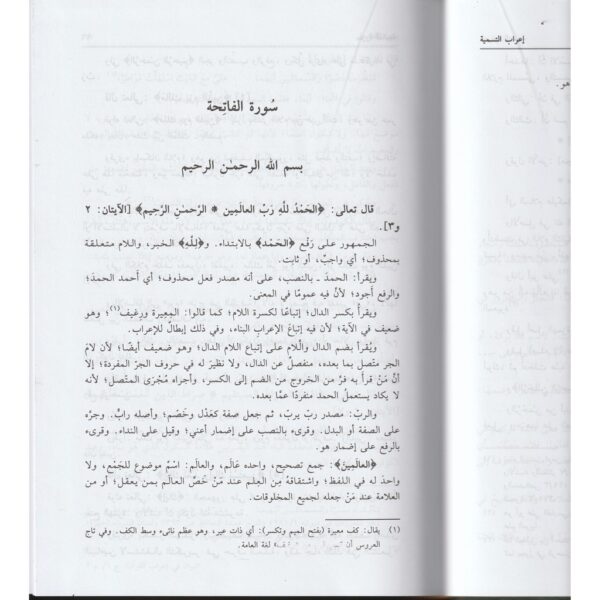 إعراب التسمية
هو.
سُورة الفاتِحة
بسم الله الرحمٰن الرحيم
قال تعالى: ﴿الحَمْدُ للهِ رَبِّ العالَمِين * الرَّحمٰنِ الرَّحِيم﴾ [الآيتان: ٢
و٣].
الجمهور على رَفْع ﴿الحَمْد﴾ بالابتداء. و﴿لِلّٰهِ﴾ الخبر، واللام متعلقة
بمحذوف؛ أي واجبٌ، أو ثابت.
ويقرأ: الحمدَ ـ بالنصب، على أنه مصدر فعل محذوف؛ أي أَحمد الحمدَ؛
والرفع أجود؛ لأنّ فيه عمومًا في المعنى.
ويقرأ بكسر الدال؛ إتباعًا لكسرة اللام؛ كما قالوا: المِعِيرة ورِغِيف(١)؛ وهو
ضعيف في الآية؛ لأن فيه إتباعَ الإعرابِ البناء، وفي ذلك إبطالٌ للإعراب.
ويُقرأ بضم الدال واللّام على إتباع اللام الدالَ؛ وهو ضعيف أيضًا؛ لأن لامَ
الجر متصل بما بعده، منفصلٌ عن الدال، ولا نظيرَ له في حروف الجر المفردة؛ إلا
أنَّ مَنْ قرأ به فرَّ من الخروج من الضم إلى الكسر، وأجراه مُجْرَى المتّصل؛ لأنه
لا يكاد يستعمل الحمد منفردًا عمَّا بعده.
والربّ: مصدر ربَّ يربّ، ثم جعل صفة كعَدْل وخَصْم؛ وأصله رابٌّ. وجرُّه
على الصفة أو البدل. وقرىء بالنصب على إضمار أعني؛ وقيل على النداء. وقرىء
بالرفع على إضمار هو.
﴿العالَمِينَ﴾: جمع تصحيح، واحده عَالَم، والعالم: اسْمٌ موضوع للجَمْع، ولا
واحدَ له في اللفظ؛ واشتقاقُه مِن العِلم عند مَنْ خَصَّ العالَم بمن يعقل؛ أو من
العلامة عند مَنْ جعله لجميع المخلوقات.
(١) يقال: كف معيرة (بفتح الميم وتكسر): أي ذات عير، وهو عظم ناتىء وسط الكف. وفي تاج
العروس أن لغة العامة.